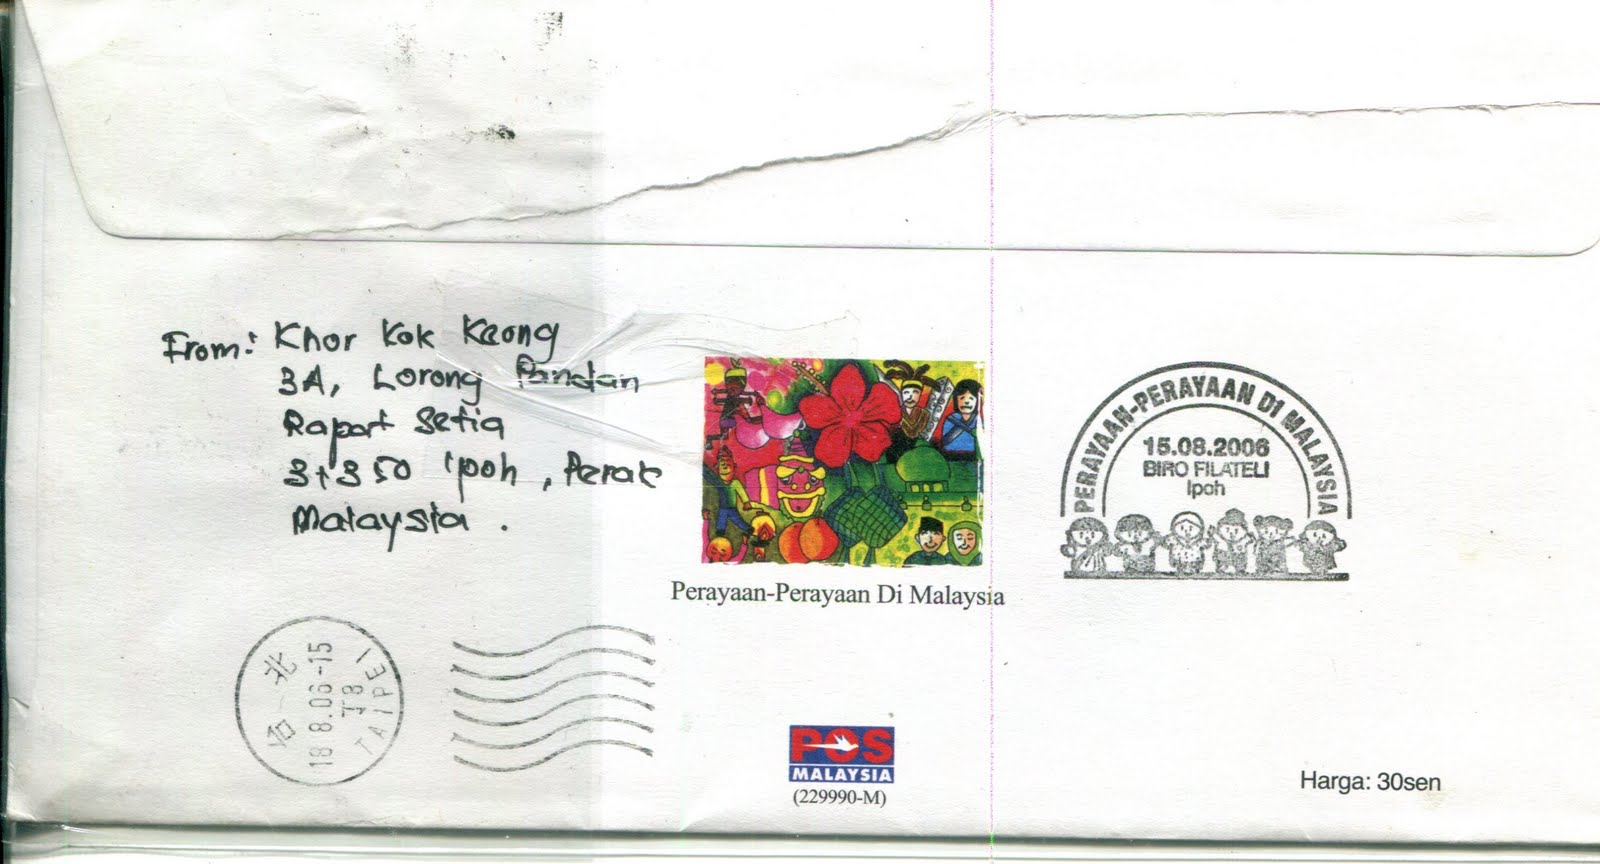 From: Khor Kok Keong
3A, Lorong Pandan
Rapat Setia
31350 Ipoh, Perak
Malaysia.
Perayaan-Perayaan Di Malaysia
PERAYAAN-PERAYAAN DI MALAYSIA
15.08.2006
BIRO FILATELI
Ipoh
台北
18.8.06.-15
T8
TAIPEI
POS
MALAYSIA
(229990-M)
Harga: 30sen